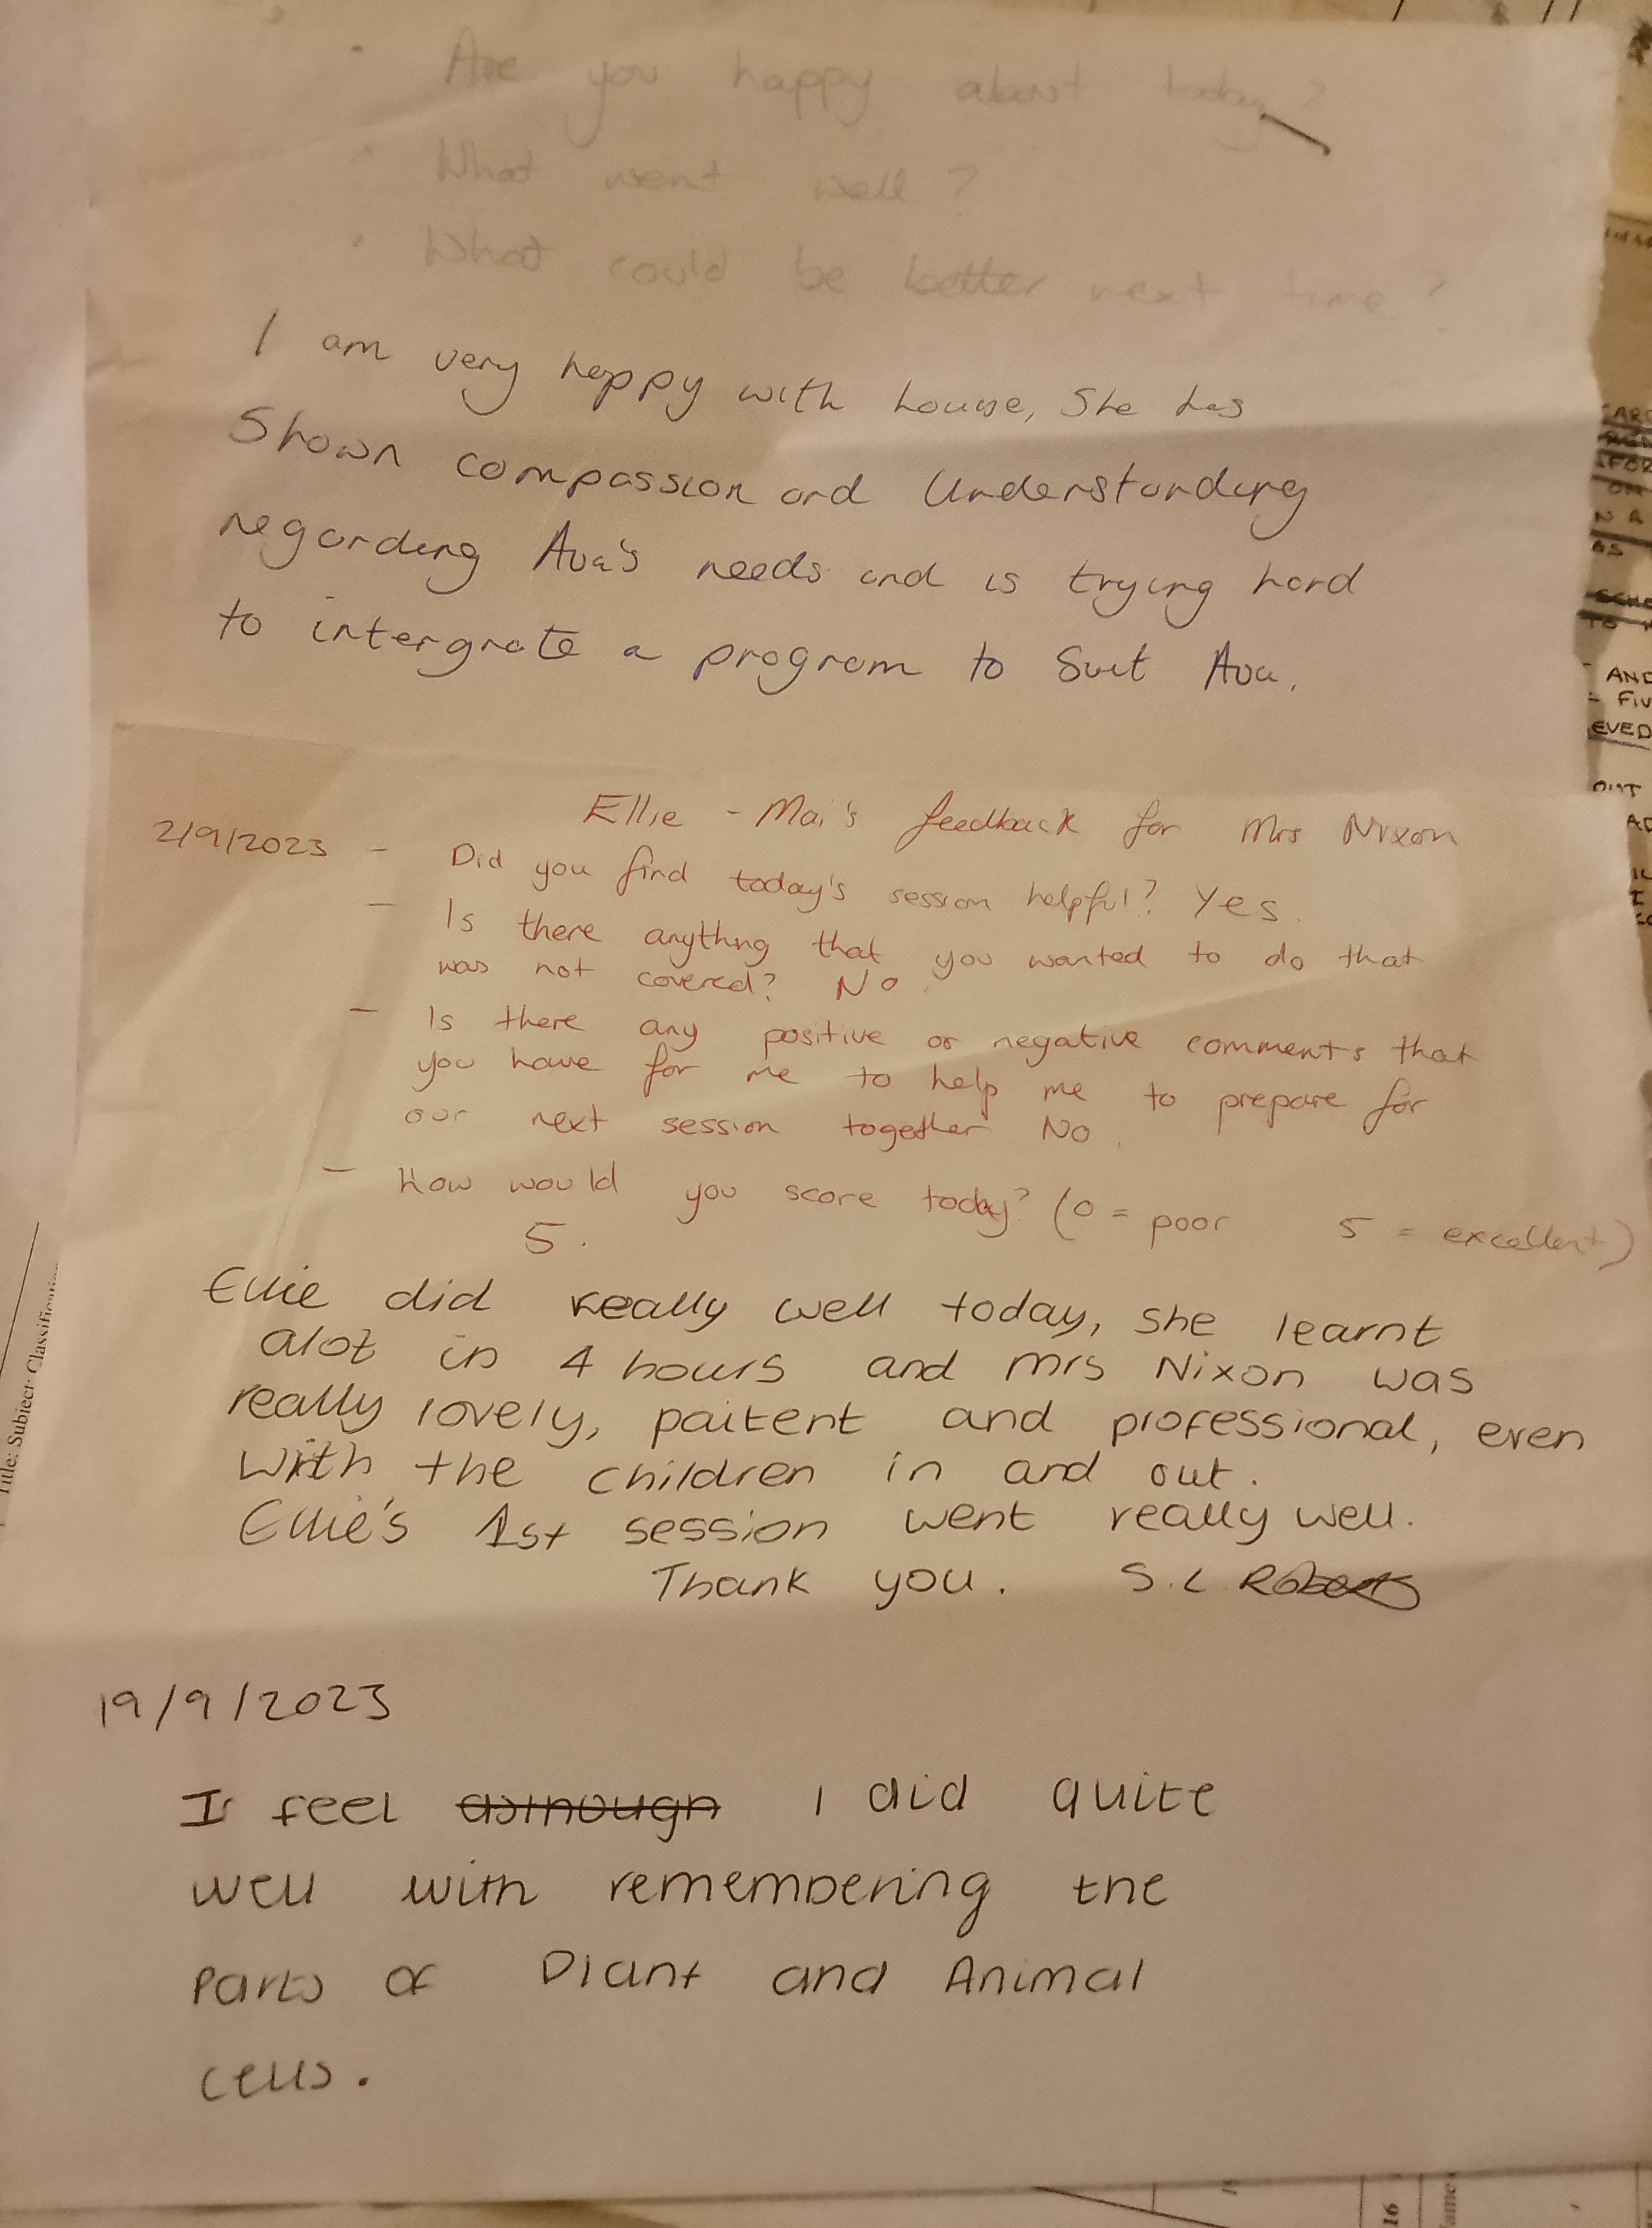 Are you happy about today?
What went well?
What could be better next time?
I am very happy with Louise, She has
Shown compassion and Understanding
regarding Ava's needs and is trying hard
to intergrate a program to Suit Ava.
Ellie - Mai's feedback for Mrs Nixon
2/9/2023 - Did you find today's session helpful? Yes.
- Is there anything that you wanted to do that
was not covered? No.
- Is there any positive or negative comments that
you have for me to help me to prepare for
our next session together No.
- How would you score today? (0 = poor 5 = excellent)
5.
Ellie did really well today, she learnt
alot in 4 hours and Mrs Nixon was
really lovely, paitent and professional, even
with the children in and out.
Ellie's 1st session went really well.
Thank you. S.L Roberts
19/9/2023
I feel asthough I did quite
well with remembering the
Parts of Plant and Animal
cells.
Title: Subject: Classification
AND
FIV
EVED
AS
TO
16